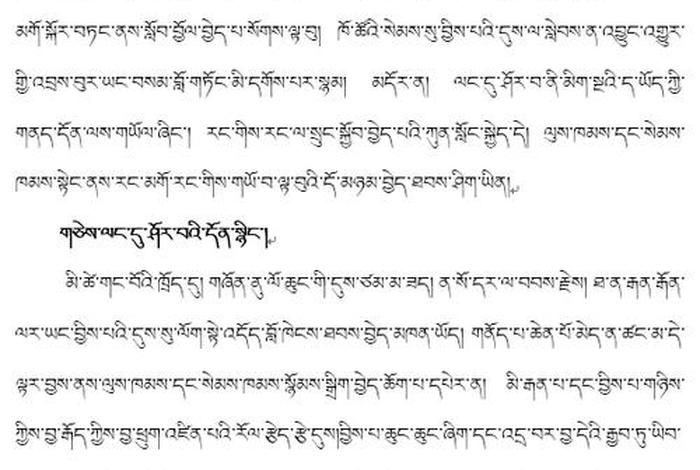 མགོ་སྐོར་བཏང་ནས་སློབ་བྱོལ་བྱེད་པ་སོགས་ལྟ་བུ། ཁོ་ཚོའི་སེམས་སུ་བྱིས་པའི་དུས་ལ་སླེབས་ན་འབྱུང་འགྱུར་
གྱི་འབྲས་བུར་ཡང་བསམ་བློ་གཏོང་མི་དགོས་པར་སྙམ། མདོར་ན། ལང་དུ་ཤོར་བ་ནི་མིག་སྔའི་ད་ཡོད་ཀྱི་
གནད་དོན་ལས་གཡོལ་ཞིང་། རང་གིས་རང་ལ་སྲུང་སྐྱོབ་བྱེད་པའི་ཀུན་སློང་སྐྱེད་དེ། ལུས་ཁམས་དང་སེམས་
ཁམས་སྟེང་ནས་རང་མགོ་རང་གིས་གཡོ་བ་ལྟ་བུའི་དོ་མཉམ་བྱེད་ཐབས་ཤིག་ཡིན།
གཅེས་ལང་དུ་ཤོར་བའི་དོན་སྙིང་།
མི་ཚེ་གང་བོའི་ཁྲོད་དུ། གཞོན་ནུ་ལོ་ཆུང་གི་དུས་ཙམ་མ་ཟད། ན་སོ་དར་ལ་བབས་རྗེས། ཐ་ན་རྒན་རྒོན་
ལར་ཡང་བྱིས་པའི་དུས་སུ་ལོག་སྟེ་འདོད་བློ་ཁེངས་ཐབས་བྱེད་མཁན་ཡོད། གནོད་པ་ཆེན་པོ་མེད་ན་ཚང་མ་དེ་
ལྟར་བྱས་ནས་ལུས་ཁམས་དང་སེམས་ཁམས་སྙོམས་སྒྲིག་བྱེད་ཆོག་པ་དཔེར་ན། མི་རྒན་པ་དང་བྱིས་པ་གཉིས་
ཀྱིས་བྱ་རྒོད་ཀྱིས་བྱ་ཕྲུག་འཛིན་པའི་རོལ་རྩེད་རྩེ་དུས།བྱིས་པ་ཆུང་ཆུང་ཞིག་དང་འདྲ་བར་བྱ་དེའི་རྒྱབ་ཏུ་ཡིབ་